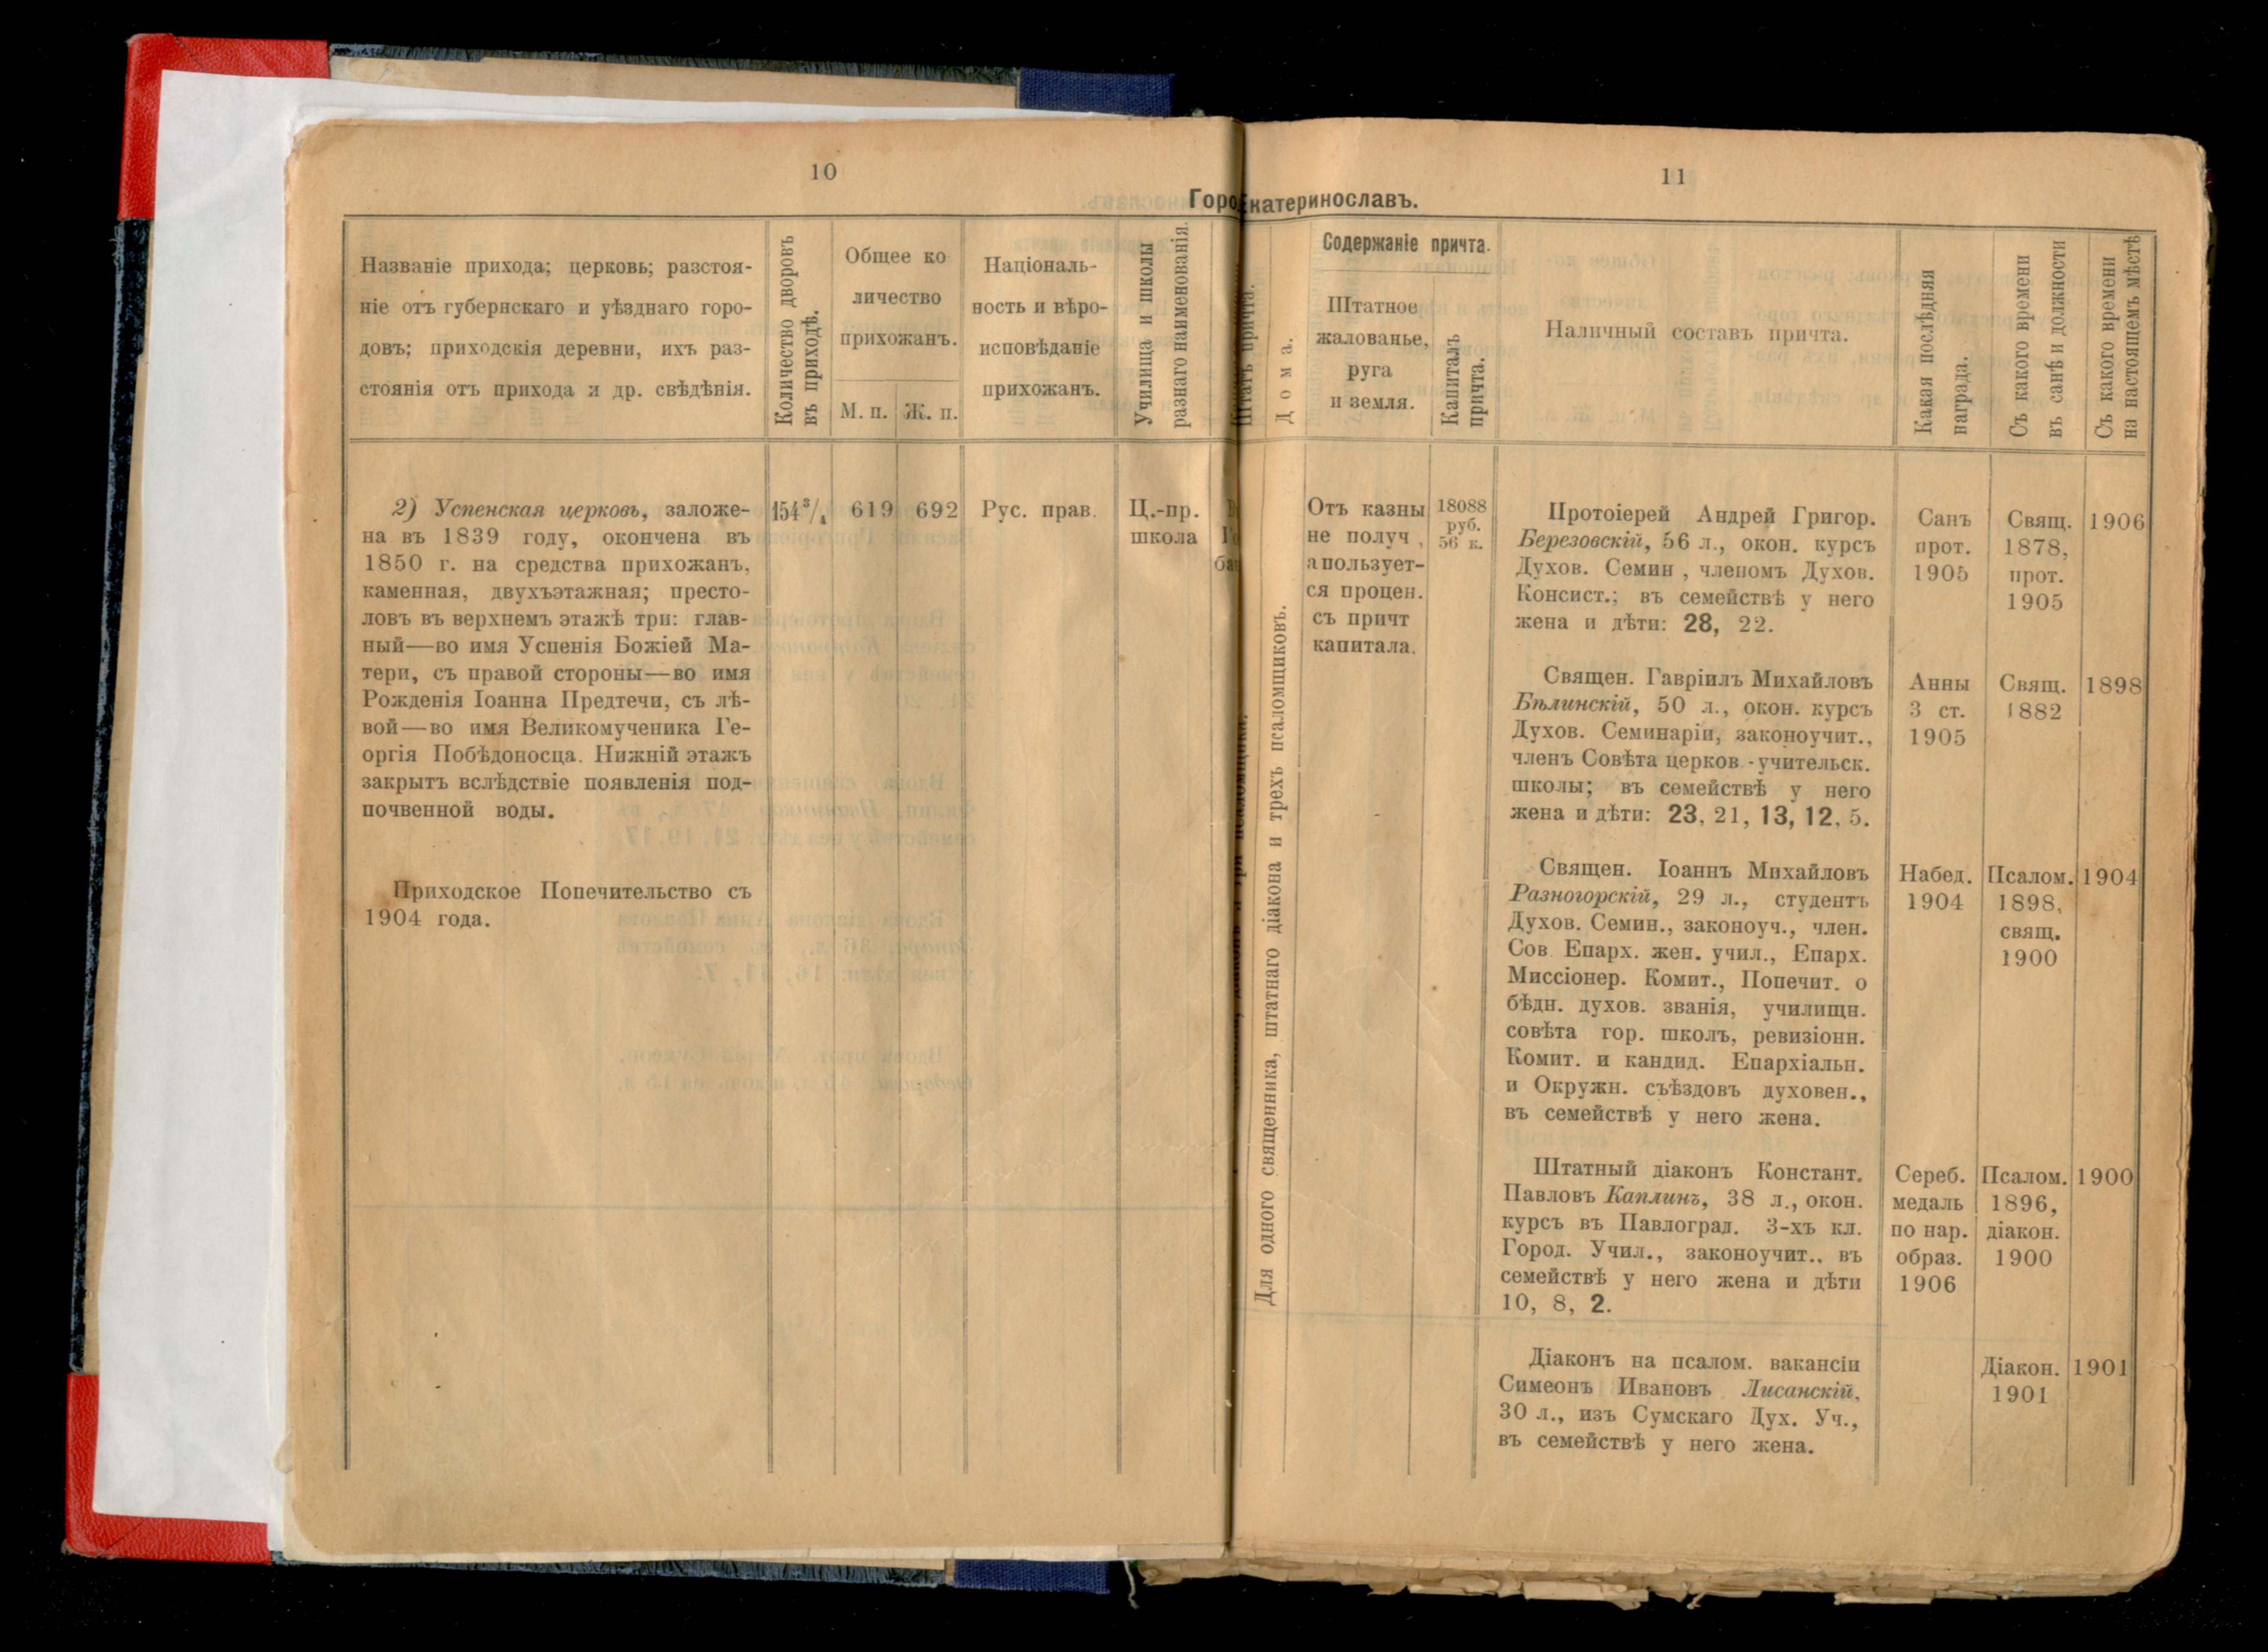 10
11
Горо Екатеринославъ.
Названіе прихода; церковь; разстоя-
ніе отъ губернскаго и уѣзднаго горо-
довъ; приходскія деревни, ихъ раз-
стоянія отъ прихода и др. свѣдѣнія.
Количество дворовъ
въ приходѣ.
Общее ко
личество
прихожанъ.
М. п.
Ж. п.
Націоналъ-
ность и вѣро-
исповѣданіе
прихожанъ.
Училища и школы
разнаго наименованія.
2) Успенская церковь, заложе-
на въ 1839 году, окончена въ
1850 г. на средства прихожанъ,
каменная, двухъэтажная; престо-
ловъ въ верхнемъ этажѣ три: глав-
ный—во имя Успенія Божіей Ма-
тери, съ правой стороны—во имя
Рожденія Іоанна Предтечи, съ лѣ-
вой—во имя Великомученика Ге-
оргія Побѣдоносца. Нижній этажъ
закрытъ вслѣдствіе появленія под-
почвенной воды.
Приходское Попечительство съ
1904 года.
154³/₄
619
692
Рус. прав.
Ц.-пр.
школа
Штатъ причта.
Дома.
Содержаніе причта.
Штатное
жалованье,
руга
и земля.
Капиталъ
причта.
Наличный составъ причта.
Какая послѣдняя
награда.
Съ какого времени
въ санѣ и должности
Съ какого времени
на настоящемъ мѣстѣ
Для одного священника, штатнаго діакона и трехъ псаломщиковъ.
Отъ казны
не получ.,
а пользует-
ся процен.
съ причт
капитала.
18088
руб.
56 к.
Протоіерей Андрей Григор.
Березовскій, 56 л., окон. курсъ
Духов. Семин , членомъ Духов.
Консист.; въ семействѣ у него
жена и дѣти: 28, 22.
Санъ
прот.
1905
Свящ.
1878,
прот.
1905
1906
Священ. Гавріилъ Михайловъ
Бѣлинскій, 50 л., окон. курсъ
Духов. Семинаріи, законоучит.,
членъ Совѣта церков.-учительск.
школы; въ семействѣ у него
жена и дѣти: 23, 21, 13, 12, 5.
Анны
3 ст.
1905
Свящ.
1882
1898
Священ. Іоаннъ Михайловъ
Разногорскій, 29 л., студентъ
Духов. Семин., законоуч., член.
Сов Епарх. жен. учил., Епарх.
Миссіонер. Комит., Попечит. о
бѣдн. духов. званія, училищн.
совѣта гор. школъ, ревизіонн.
Комит. и кандид. Епархіальн.
и Окружн. съѣздовъ духовен.,
въ семействѣ у него жена.
Набед.
1904
Псалом.
1898,
свящ.
1900
1904
Штатный діаконъ Констант.
Павловъ Каплинъ, 38 л., окон.
курсъ въ Павлоград. 3-хъ кл.
Город. Учил., законоучит., въ
семействѣ у него жена и дѣти
10, 8, 2.
Сереб.
медаль
по нар.
образ.
1906
Псалом.
1896,
діакон.
1900
1900
Діаконъ на псалом. вакансіи
Симеонъ Ивановъ Лисанскій,
30 л., изъ Сумскаго Дух. Уч.,
въ семействѣ у него жена.
Діакон.
1901
1901